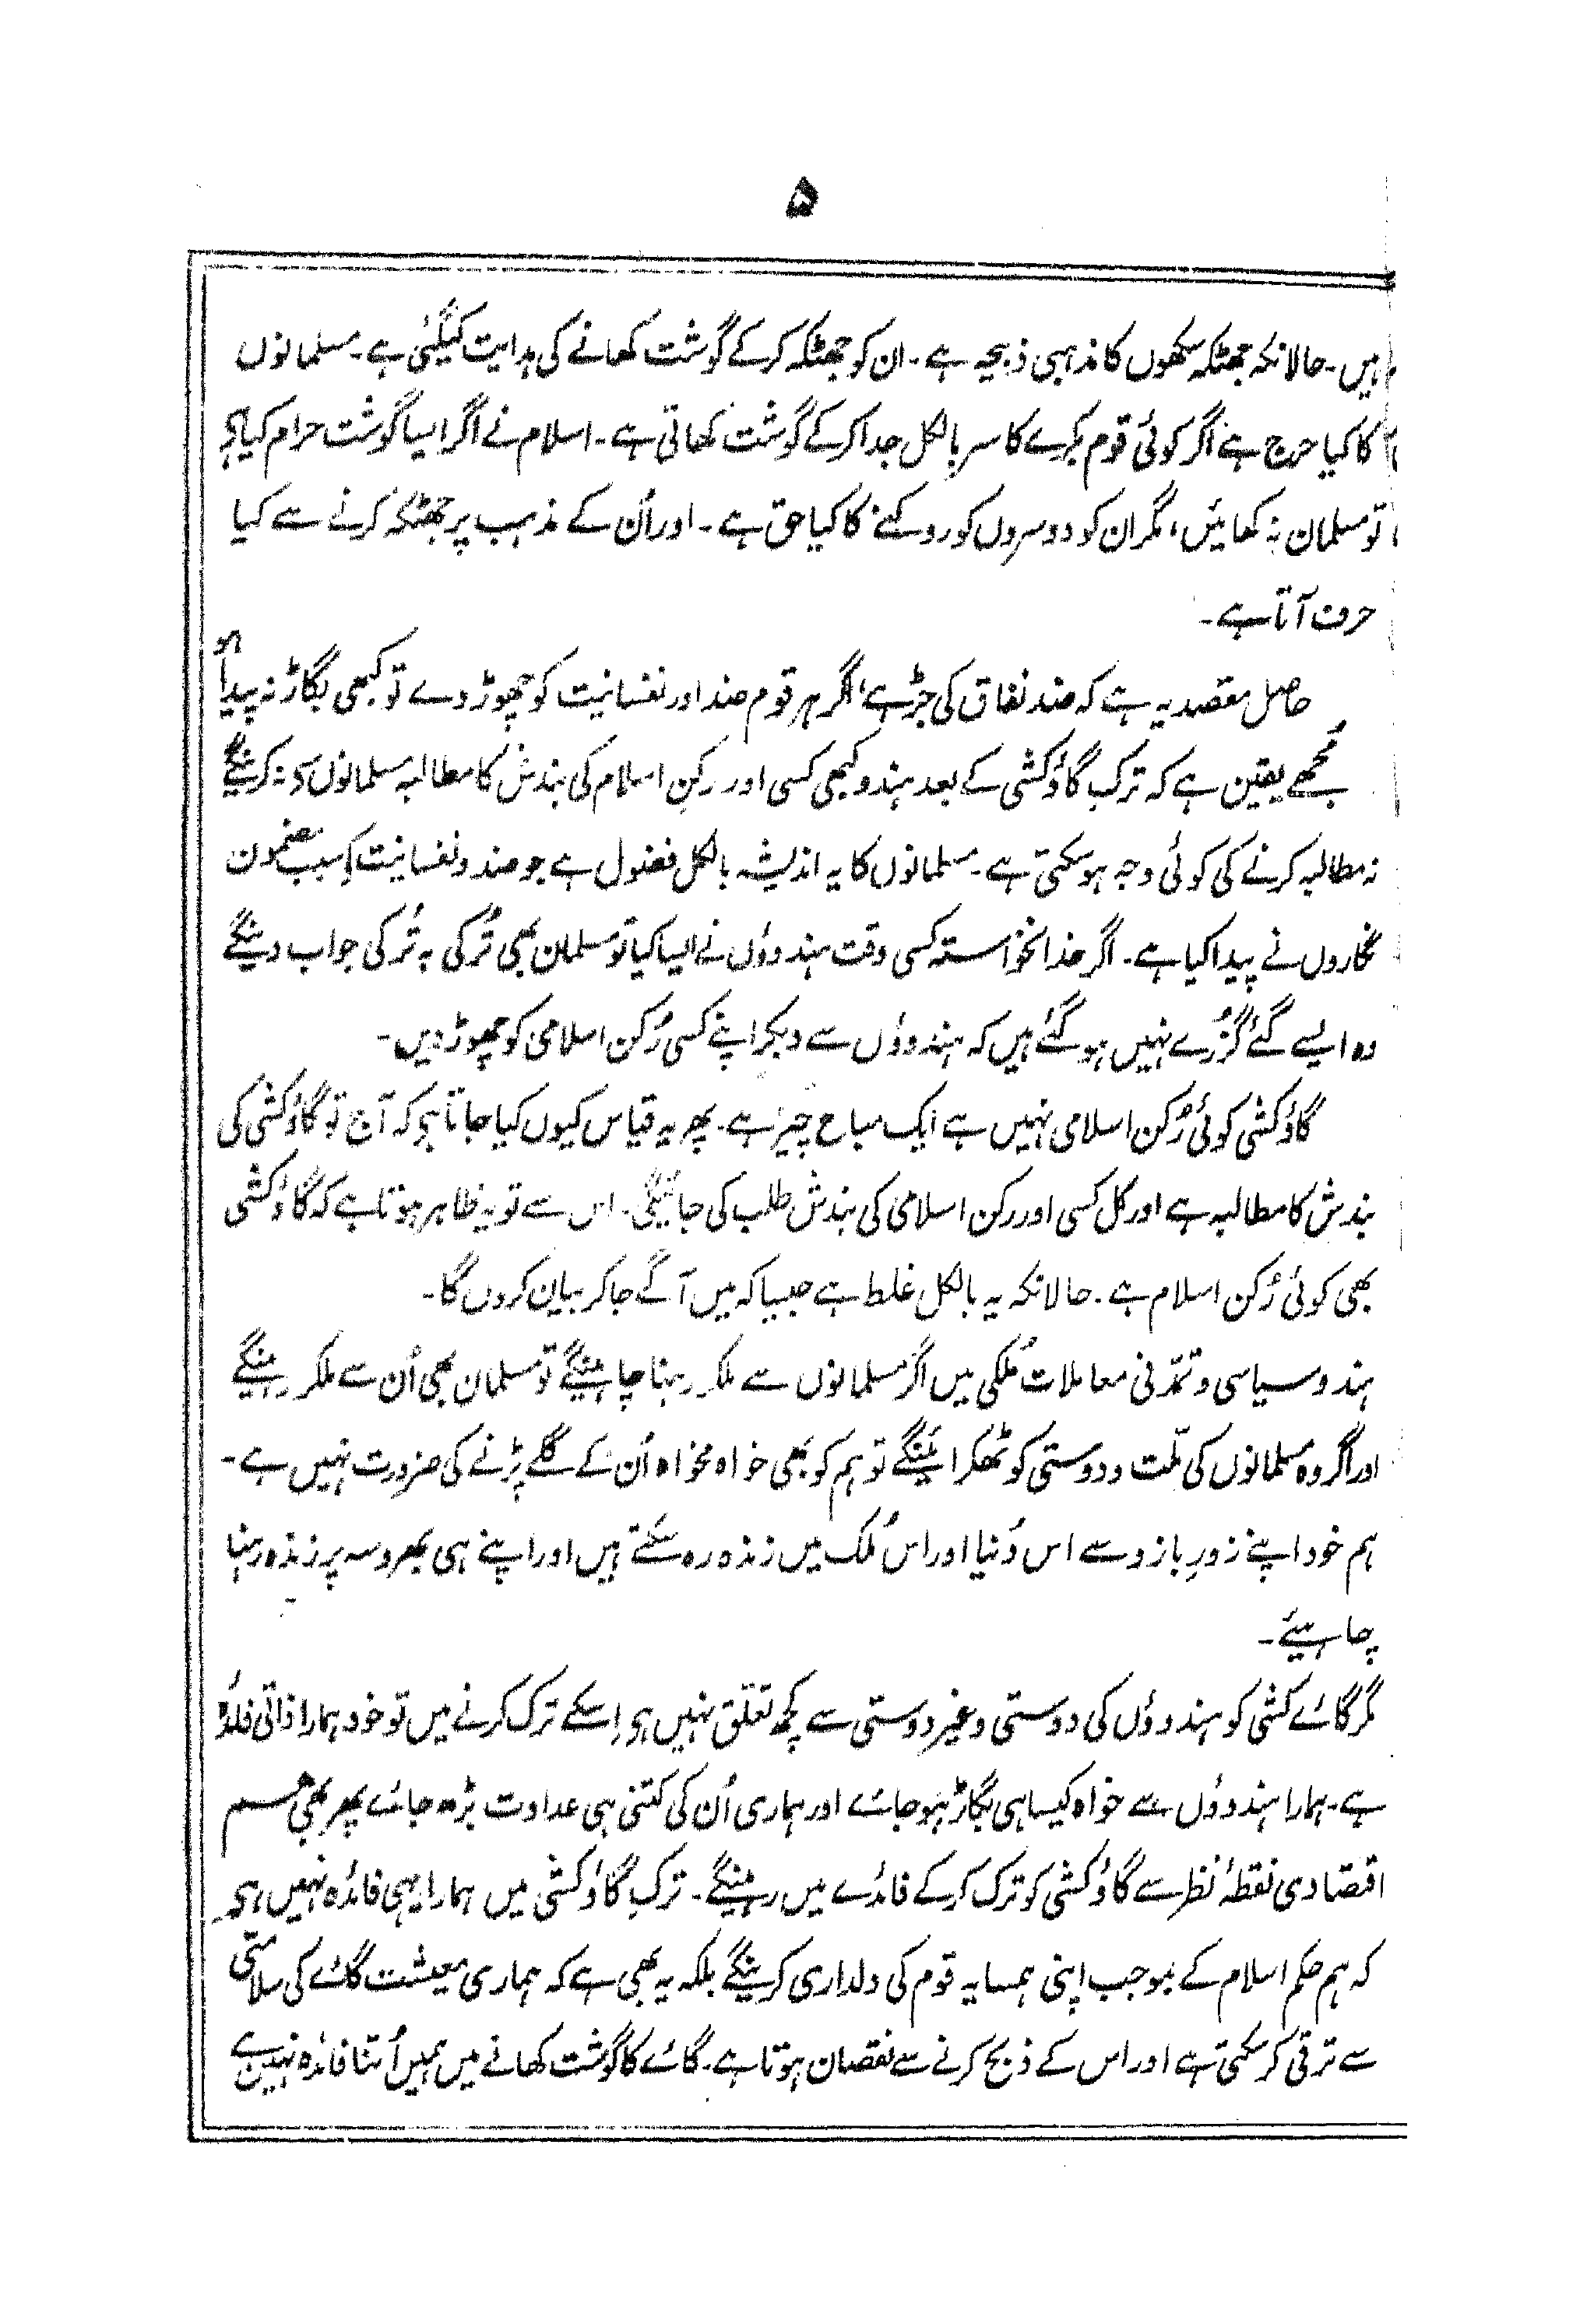 ۵
ہیں۔ حالانکہ جھٹکہ سکھوں کا مذہبی ذبیحہ ہے۔ ان کو جھٹکہ کرکے گوشت کھانے کی ہدایت کیگئی ہے۔ مسلمانوں
کا کیا حرج ہے اگر کوئی قوم بکرے کا سر بالکل جدا کرکے گوشت کھاتی ہے۔ اسلام نے اگر ایسا گوشت حرام کیا ہے
تو مسلمان نہ کھائیں، مگر ان کو دوسروں کو روکنے کا کیا حق ہے۔ اور اُن کے مذہب پر جھٹکہ کرنے سے کیا
حرف آتا ہے۔
حاصل مقصد یہ ہے کہ ضد نفاق کی جڑ ہے، اگر ہر قوم ضد اور نفسانیت کو چھوڑ دے تو کبھی بگاڑ نہ پیدا ہو
مُجھے یقین ہے کہ ترکِ گاؤکشی کے بعد ہندو کبھی کسی اور رکنِ اسلام کی بندش کا مطالبہ مسلمانوں سے نہ کرینگے
نہ مطالبہ کرنے کی کوئی وجہ ہوسکتی ہے۔ مسلمانوں کا یہ اندیشہ بالکل فضول ہے جو ضد و نفسانیت کے سبب مضمون
نگاروں نے پیدا کیا ہے۔ اگر خدانخواستہ کسی وقت ہندوؤں نے ایسا کیا تو مسلمان بھی تُرکی بہ تُرکی جواب دینگے
وہ ایسے گئے گزُرے نہیں ہوگئے ہیں کہ ہندوؤں سے دبکر اپنے کسی رُکن اسلامی کو چھوڑ دیں۔
گاؤکشی کوئی رُکن اسلامی نہیں ہے ایک مباح چیز ہے۔ پھر یہ قیاس کیوں کیا جاتا ہے کہ آج تو گاؤکشی کی
بندش کا مطالبہ ہے اور کل کسی اور رکن اسلامی کی بندش طلب کی جائیگی۔ اس سے تو یہ ظاہر ہوتا ہے کہ گاؤکشی
بھی کوئی رُکن اسلام ہے۔ حالانکہ یہ بالکل غلط ہے جیسا کہ میں آگے جاکر بیان کروں گا۔
ہندو سیاسی و تمدّنی معاملات مُلکی میں اگر مسلمانوں سے ملکر رہنا چاہینگے تو مسلمان بھی اُن سے ملکر رہینگے
اور اگر وہ مسلمانوں کی ملّت و دوستی کو ٹھکرائینگے تو ہم کو بھی خواہ مخواہ اُن کے گلے پڑنے کی ضرورت نہیں ہے۔
ہم خود اپنے زورِ بازو سے اس دُنیا اور اس مُلک میں زندہ رہ سکتے ہیں اور اپنے ہی بھروسہ پر زندہ رہنا
چاہیئے۔
مگر گائے کشی کو ہندوؤں کی دوستی و غیر دوستی سے کچھ تعلّق نہیں ہے اِسکے ترک کرنے میں تو خود ہمارا ذاتی فائدہ
ہے۔ ہمارا ہندوؤں سے خواہ کیسا ہی بگاڑ ہوجائے اور ہماری اُن کی کتنی ہی عداوت بڑھ جائے پھر بھی ہم
اقتصادی نقطۂ نظر سے گاؤکشی کو ترک کرکے فائدے میں رہینگے۔ ترکِ گاؤکشی میں ہمارا یہی فائدہ نہیں ہے
کہ ہم حکم اسلام کے بموجب اپنی ہمسایہ قوم کی دلداری کرینگے بلکہ یہ بھی ہے کہ ہماری معیشت گائے کی سلامتی
سے ترقی کرسکتی ہے اور اس کے ذبح کرنے سے نقصان ہوتا ہے۔ گائے کا گوشت کھانے میں ہمیں اُتنا فائدہ نہیں ہے